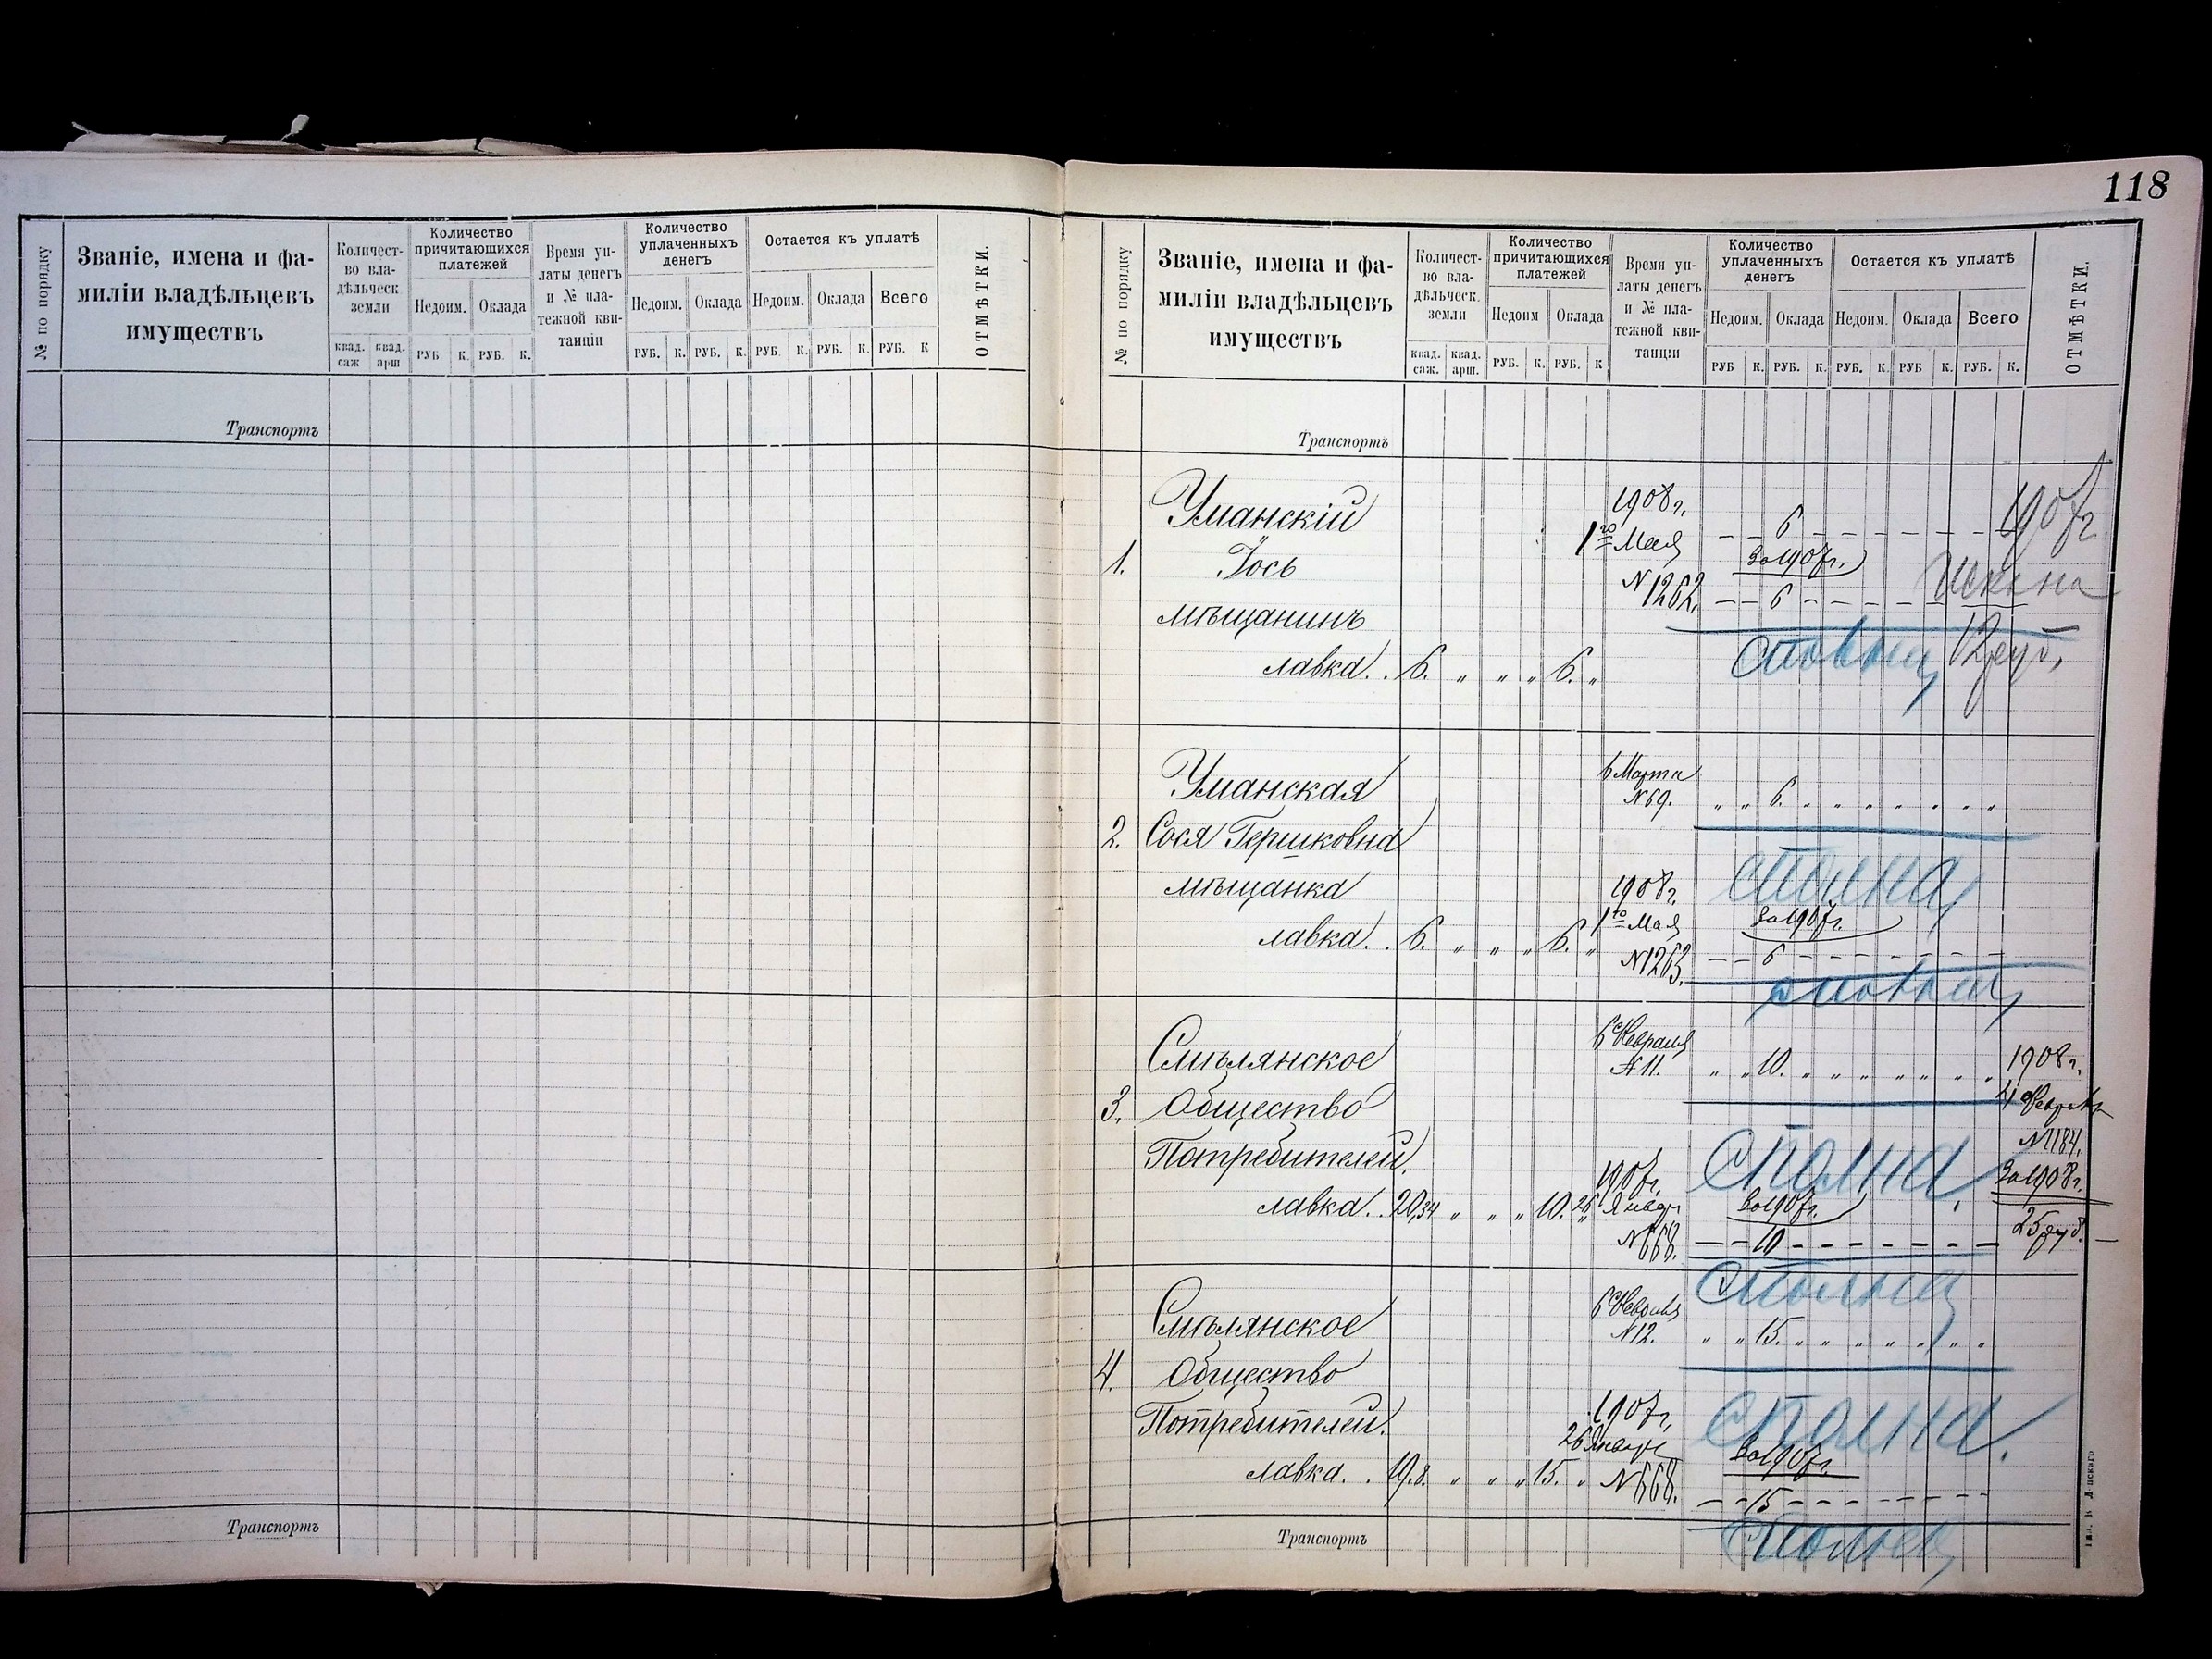 118
№ по порядку
Званіе, имена и фа-
миліи владѣльцевъ
имуществъ
Количест-
во вла-
дѣльческ.
земли
квад. саж
квад. арш
Количество
причитающихся
платежей
Недоим.
Оклада
РУБ К. РУБ. К.
Время уп-
латы денегъ
и № пла-
тежной кви-
танціи
Количество
уплаченныхъ
денегъ
Недоим.
Оклада
РУБ. К. РУБ. К.
Остается къ уплатѣ
Недоим.
Оклада
Всего
РУБ. К. РУБ. К. РУБ. К
ОТМѢТКИ.
Транспортъ
Транспортъ
№ по порядку
Званіе, имена и фа-
миліи владѣльцевъ
имуществъ
Количест-
во вла-
дѣльческ.
земли
квад. саж.
квад. арш.
Количество
причитающихся
платежей
Недоим
Оклада
РУБ. К. РУБ. К
Время уп-
латы денегъ
и № пла-
тежной кви-
танціи
Количество
уплаченныхъ
денегъ
Недоим.
Оклада
РУБ К. РУБ. К.
Остается къ уплатѣ
Недоим.
Оклада
Всего
РУБ. К. РУБ К. РУБ. К.
ОТМѢТКИ.
Транспортъ
Уманскій
1. Іось
мѣщанинъ
лавка. . 6. „ „ „ 6. „
1908 г.
1го Мая
N 1262.
6
За 1907 г.
6
1907 г
12 руб.
Уманская
2. Сося Гершковна
мѣщанка
лавка. . 6. „ „ „ 6. „
6 Марта
N 69. „ „ 6. „ „ „ „ „ „ „
сполна
1908 г.
1го Мая
N 1263.
За 1907 г.
6
Смѣлянское
3. Общество
Потребителей.
лавка. . 20,34 „ „ „ 10. „
6 Февраля
N 11. „ „ 10. „ „ „ „ „ „ „
сполна.
1907 г.
26 Январ
N 668.
За 1907 г.
10
1908 г.
4 Февраля
N 1184.
За 1908 г.
25 руб.
сполна
Смѣлянское
4. Общество
Потребителей.
лавка. . 19.8. „ „ „ 15. „
6 Февраля
N 12. „ „ 15. „ „ „ „ „ „ „
сполна.
1907 г.
26 Январ
N 668.
За 1907 г.
15
сполна
Транспортъ